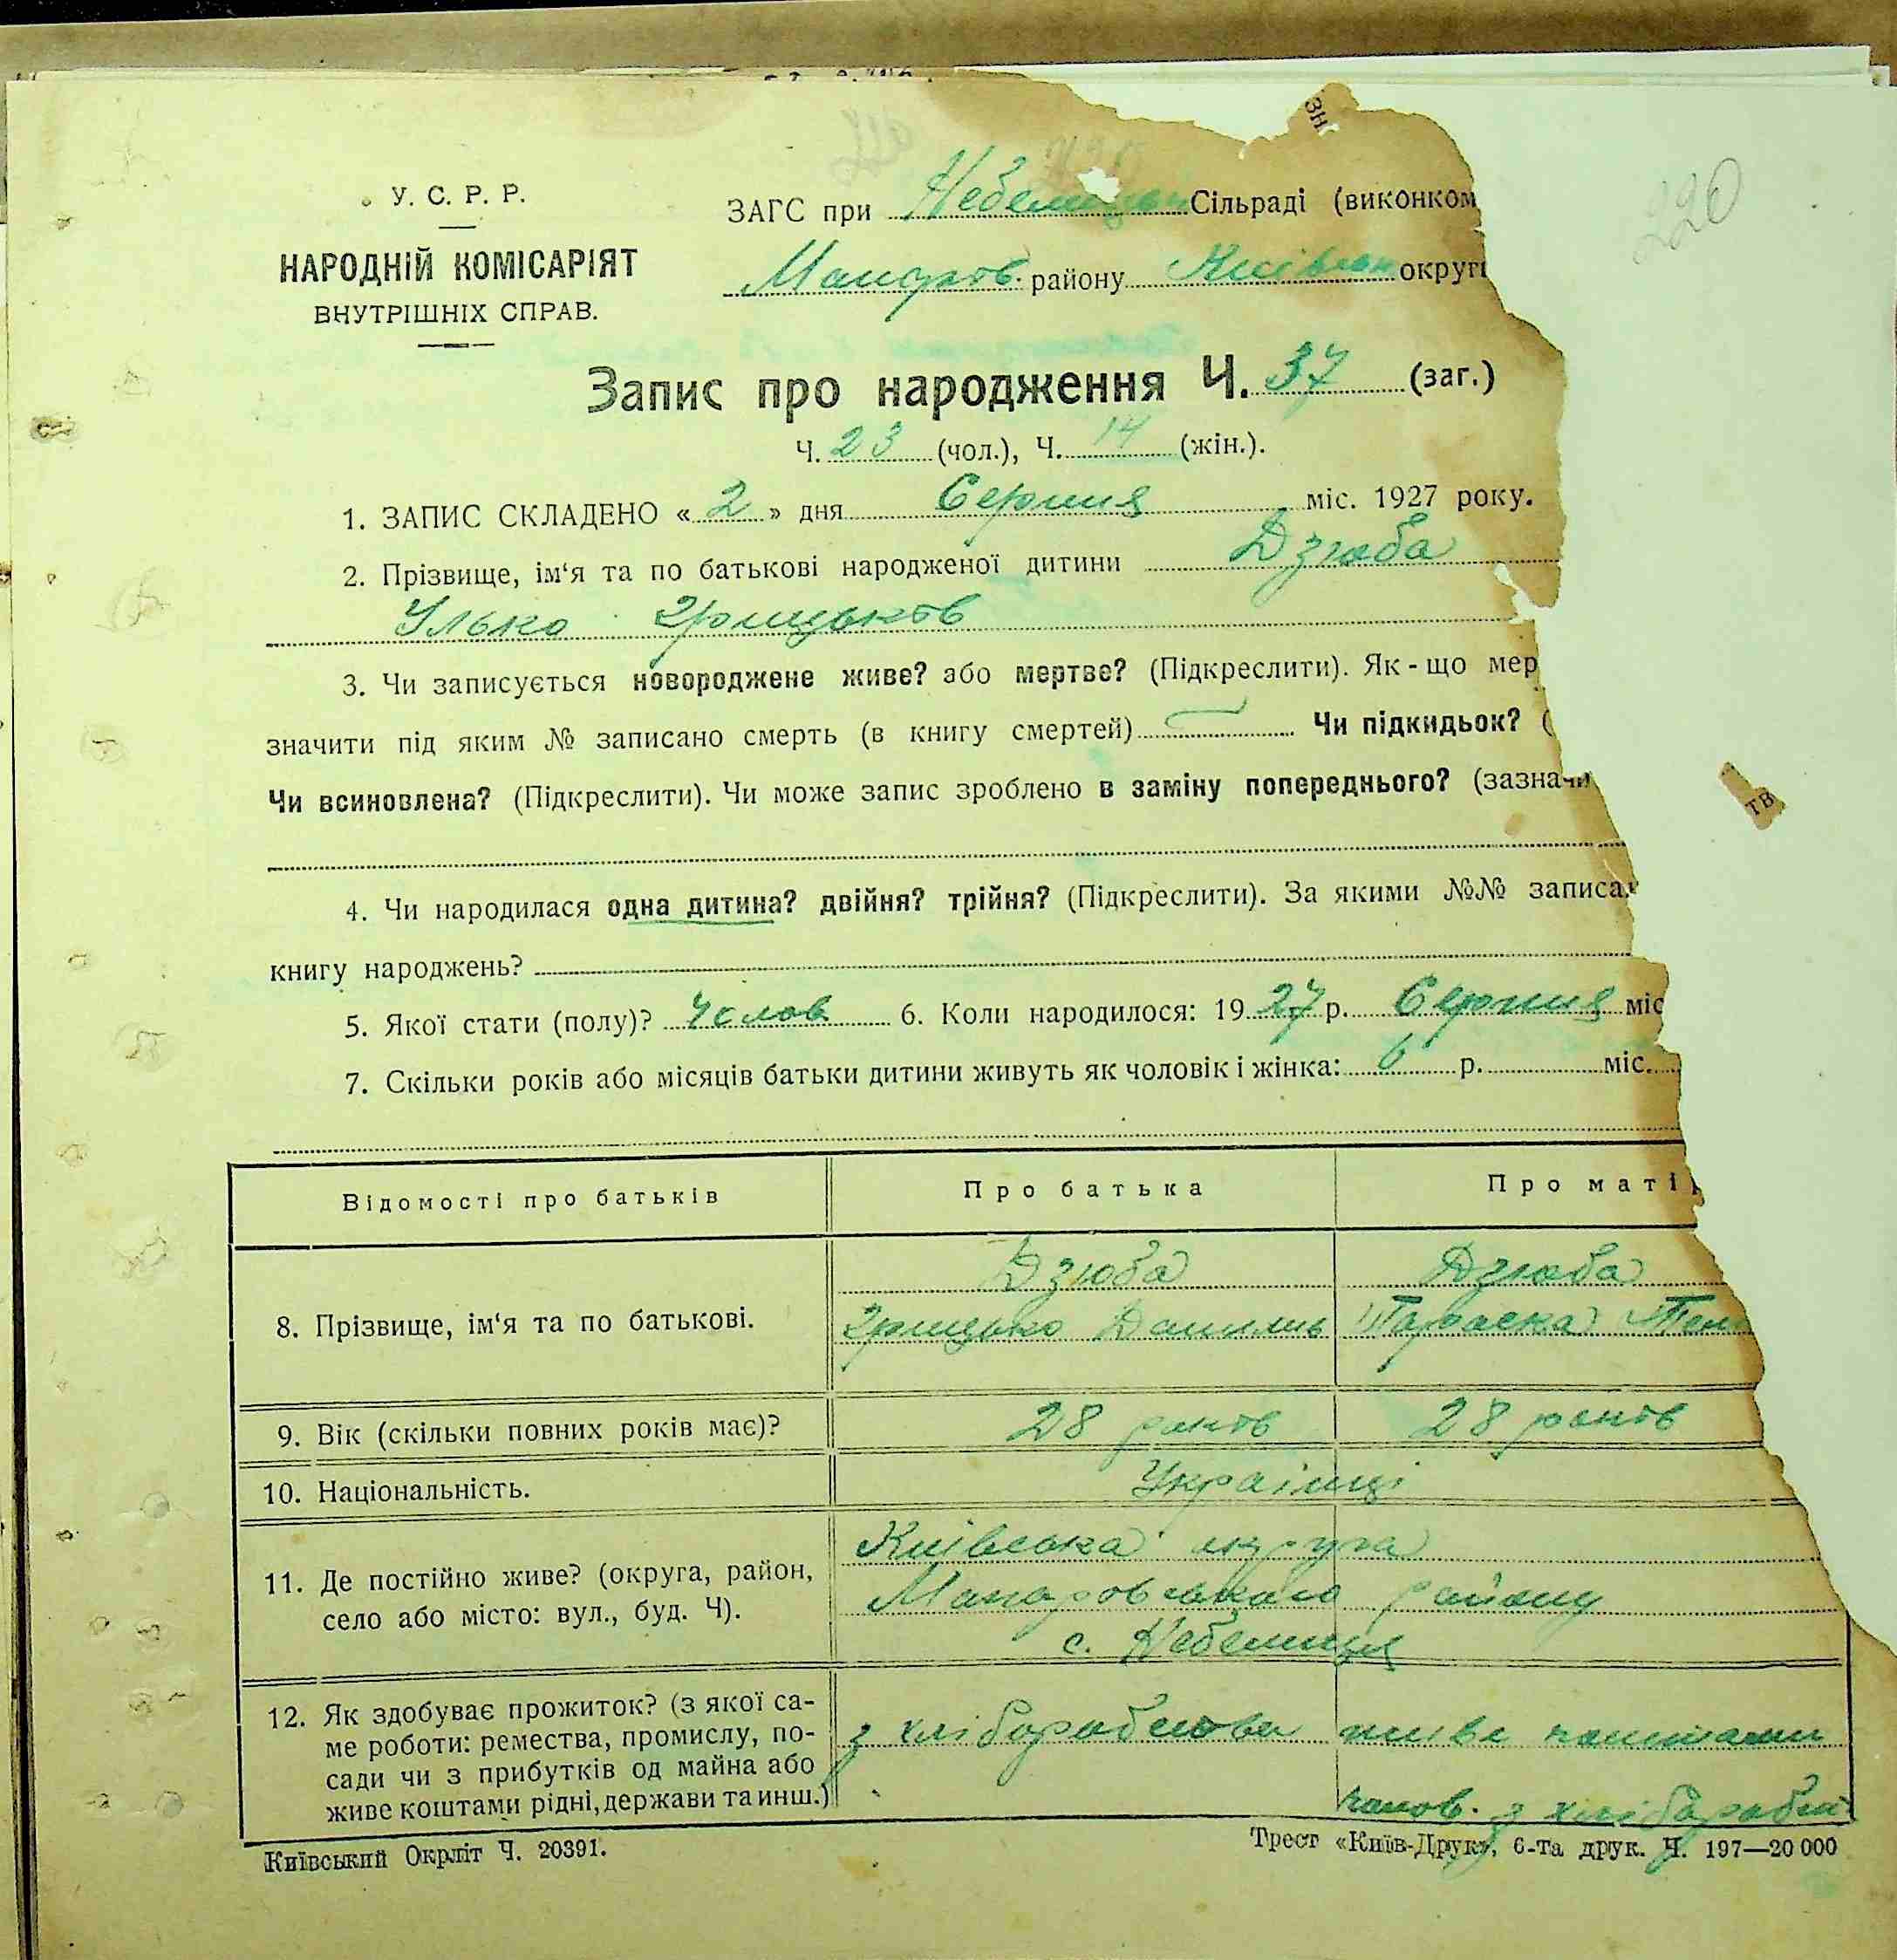 220
У. С. Р. Р.
НАРОДНІЙ КОМІСАРІЯТ
ВНУТРІШНІХ СПРАВ.
ЗАГС при Сільраді (виконком
Макаров. району Київськ округи
зн
Запис про народження Ч. 37 (заг.)
Ч. 23 (чол.), Ч. 14 (жін.).
1. ЗАПИС СКЛАДЕНО « 2 » дня Серпня міс. 1927 року.
2. Прізвище, ім‘я та по батькові народженої дитини Дзюба
Улько Грицьков
3. Чи записується новороджене живе? або мертве? (Підкреслити). Як-що мер
значити під яким № записано смерть (в книгу смертей) Чи підкидьок? (
Чи всиновлена? (Підкреслити). Чи може запис зроблено в заміну попереднього? (зазначи
тв
4. Чи народилася одна дитина? двійня? трійня? (Підкреслити). За якими №№ записа
книгу народжень?
5. Якої стати (полу)? Чолов 6. Коли народилося: 19 27 р. Серпня міс
7. Скільки років або місяців батьки дитини живуть як чоловік і жінка: 6 р. міс.
Відомості про батьків Про батька Про матір
8. Прізвище, ім‘я та по батькові.
Дзюба Дзюба
Грицько Данилов Параска
9. Вік (скільки повних років має)? 28 років 28 років
10. Національність. Украінці
11. Де постійно живе? (округа, район,
село або місто: вул., буд. Ч).
Київська округа
Макаровського району
с. Небелиця
12. Як здобуває прожиток? (з якої са-
ме роботи: ремества, промислу, по-
сади чи з прибутків од майна або
живе коштами рідні, держави та инш.)
з хліборобства живе коштами
чолов. з хлібороб
Київський Окрліт Ч. 20391.
Трест «Київ-Друк», 6-та друк. Ч. 197—20 000